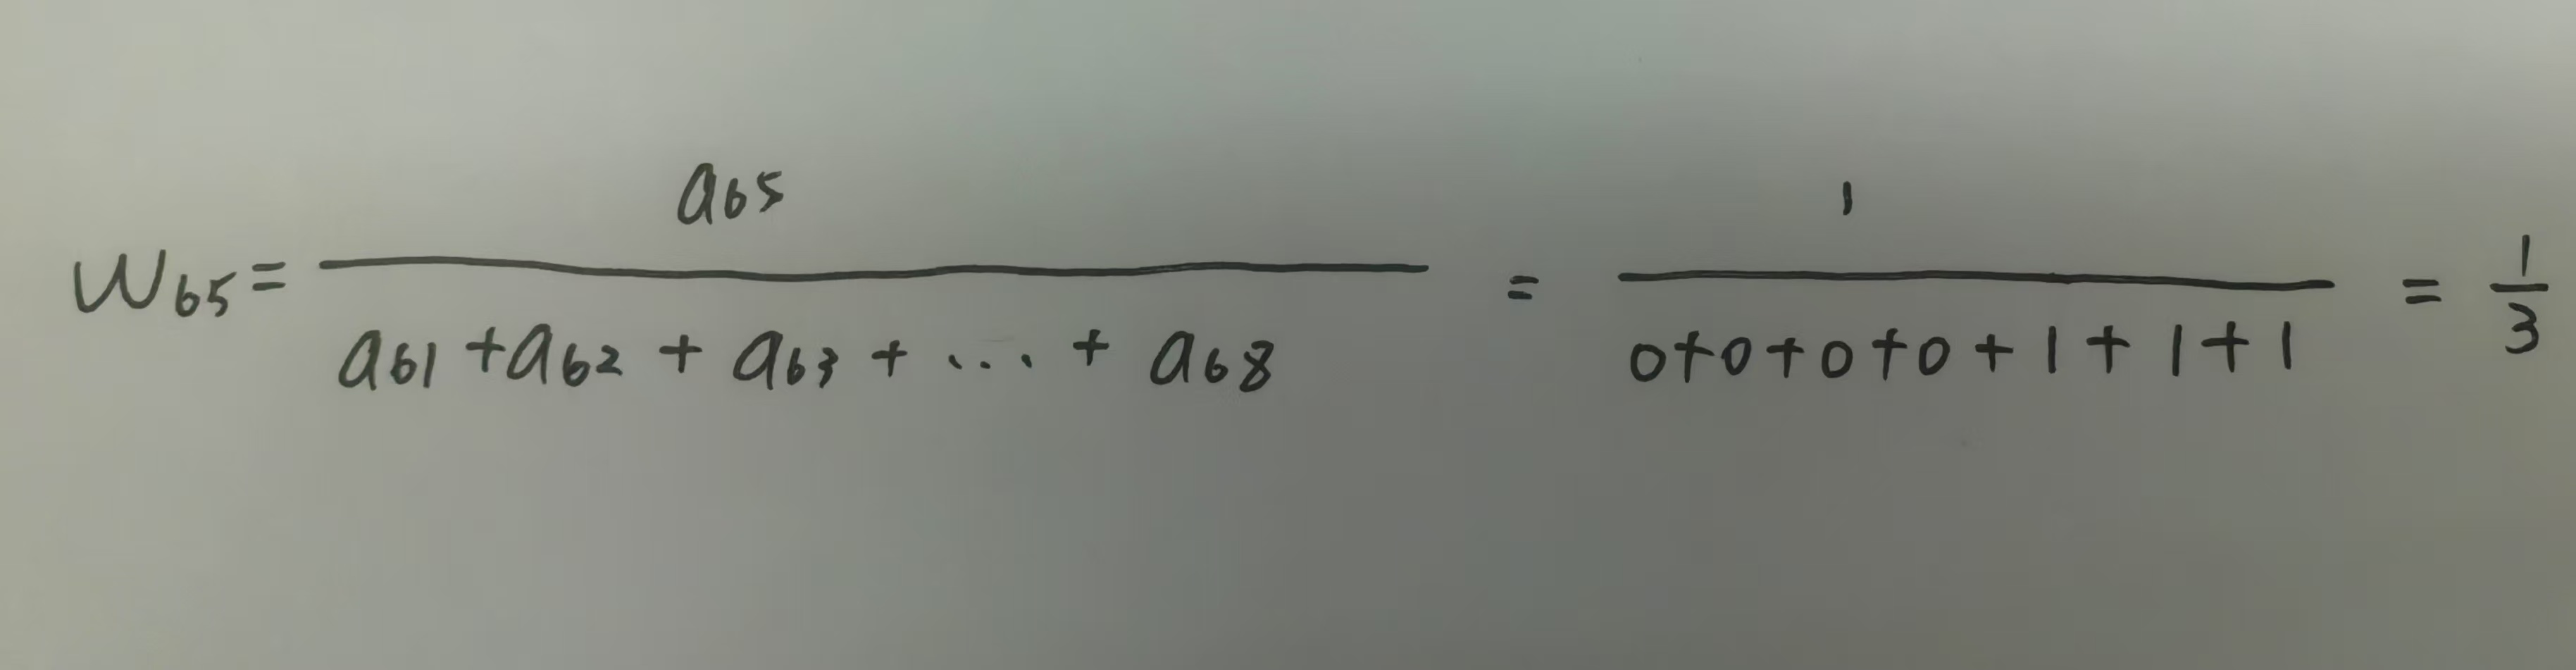 W₆₅ = a₆₅ / (a₆₁ + a₆₂ + a₆₃ + ... + a₆₈) = 1 / (0+0+0+0+1+1+1) = 1/3